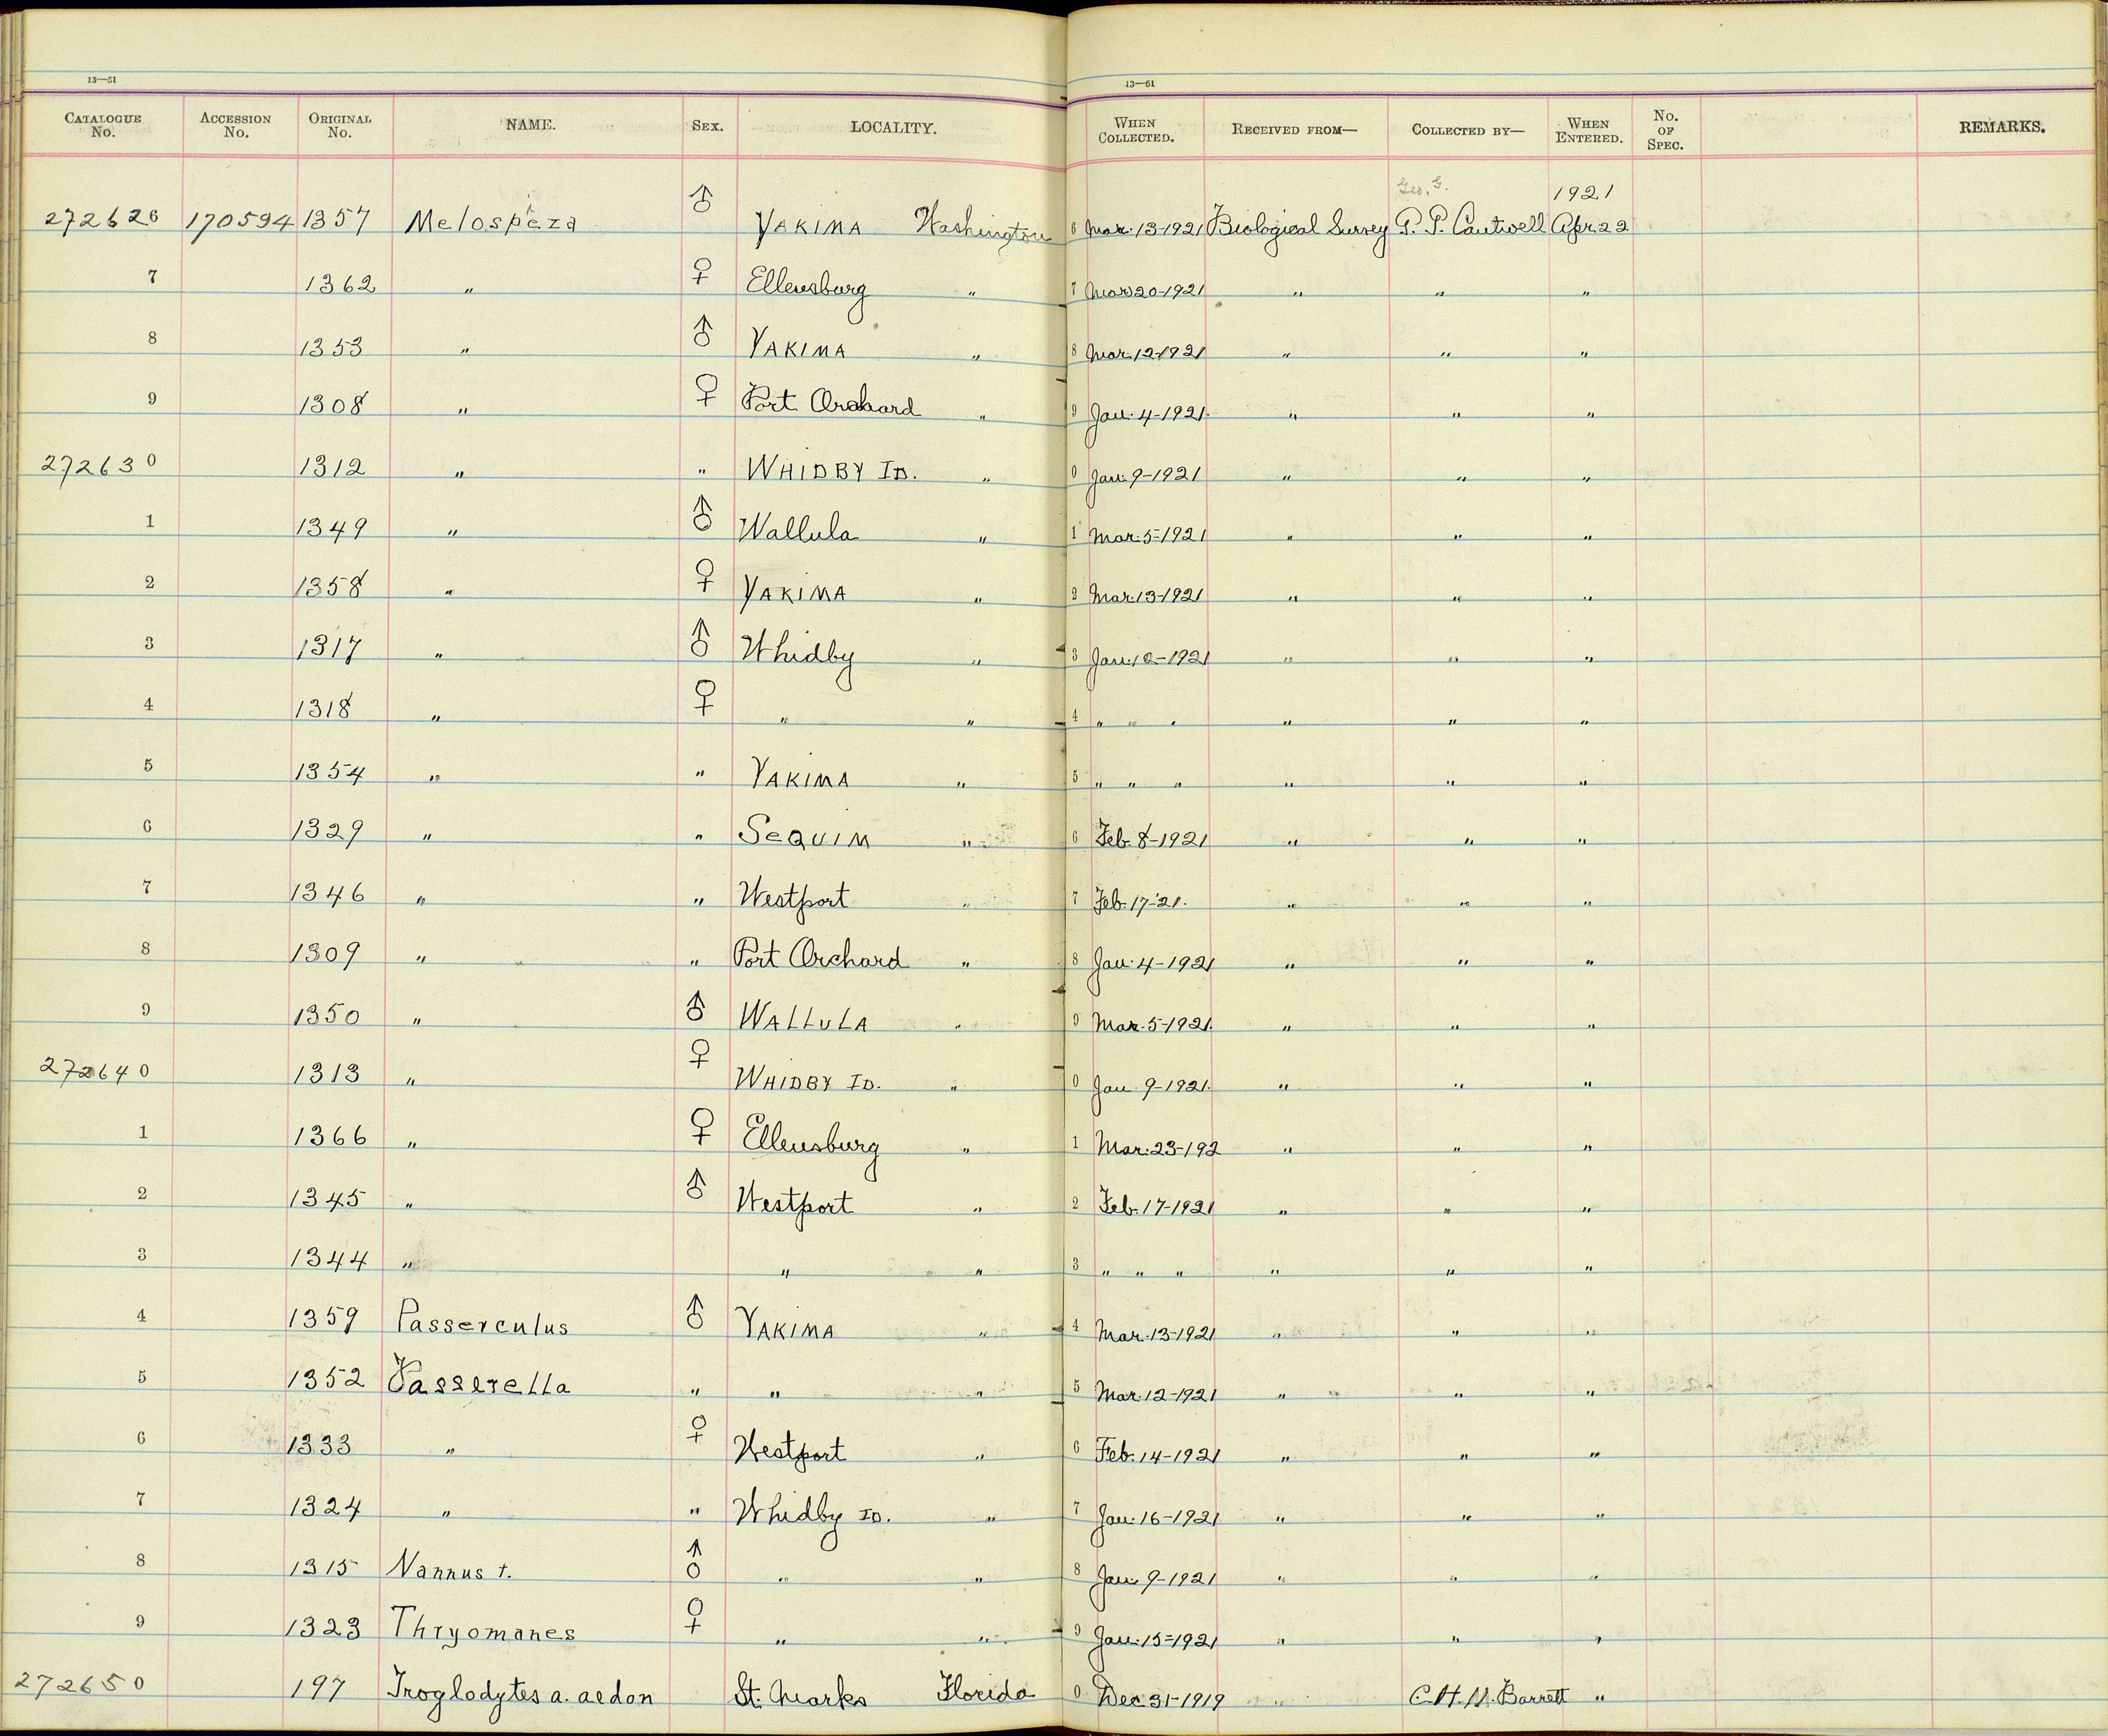 13—51 13—51
CATALOGUE No. ACCESSION No. ORIGINAL No. NAME. SEX. LOCALITY. WHEN COLLECTED. RECEIVED FROM— COLLECTED BY— WHEN ENTERED. No. OF SPEC. REMARKS.
Geo. G. 1921
272626 170594 1357 Melospeza ♂ YAKIMA Washington 6 Mar. 13-1921 Biological Survey P. P. Cantwell Apr. 22
7 1362 " ♀ Ellensburg " 7 Mar 20-1921 " " "
8 1353 " ♂ YAKIMA " 8 Mar. 12-1921 " " "
9 1308 " ♀ Port Orchard " 9 Jan. 4-1921. " " "
272630 1312 " " WHIDBY ID. " 0 Jan. 9-1921 " " "
1 1349 " ♂ Wallula " 1 Mar. 5-1921 " " "
2 1358 " ♀ YAKIMA " 2 Mar. 13-1921 " " "
3 1317 " ♂ Whidby " 3 Jan. -1921 " " "
4 1318 " ♀ " " 4 " " " " " "
5 1354 " " YAKIMA " 5 " " " " " "
6 1329 " " SEQUIM " 6 Feb. 8-1921 " " "
7 1346 " " Westport " 7 Feb. 17-'21. " " "
8 1309 " " Port Orchard " 8 Jan. 4-1921 " " "
9 1350 " ♂ WALLULA " 9 Mar. 5-1921. " " "
272640 1313 " ♀ WHIDBY ID. " 0 Jan. 9-1921. " " "
1 1366 " ♀ Ellensburg " 1 Mar. 23-192 " " "
2 1345 " ♂ Westport " 2 Feb. 17-1921 " " "
3 1344 " " " 3 " " " " " "
4 1359 Passerculus ♂ YAKIMA " 4 Mar. 13-1921 " " "
5 1352 Passerella " " " 5 Mar. 12-1921 " " "
6 1333 " ♀ Westport " 6 Feb. 14-1921 " " "
7 1324 " " Whidby ID. " 7 Jan. 16-1921 " " "
8 1315 Nannus t. ♂ " " 8 Jan. 9-1921 " " "
9 1323 Thryomanes ♀ " " 9 Jan. 15-1921 " " "
272650 197 Troglodytes a. aedon St. Marks Florida 0 Dec 31-1919 " C. H. M. Barrett "